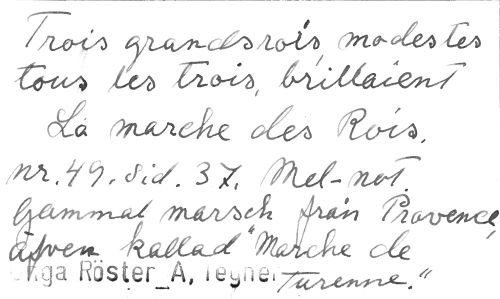 Trois grands rois, modestes
tous les trois, brillaient
La marche des Rois.
nr. 49. sid. 37. Mel-not.
Gammal marsch från Provence,
äfven kallad "Marche de
Turenne."
Unga Röster_A, Tegner